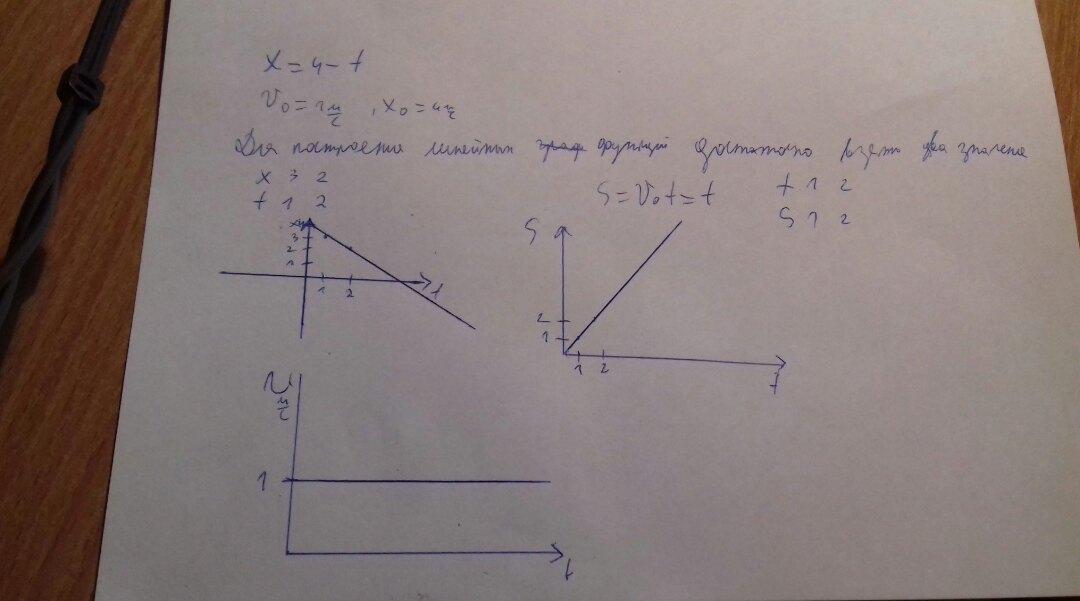 x = 4 - t
v₀ = 1 м/с , x₀ = 4 м/с
Для построения линейных граф функций достаточно взять два значена
x 3 2
t 1 2
S = v₀t = t
t 1 2
S 1 2
x 4
3
2
1
1 2
t
S
2
1
1 2
t
v м/с
1
t